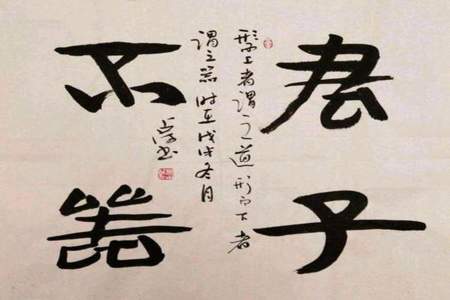 君子
不器
形而上者谓之道形而下者
谓之器时在戊戌冬月
书